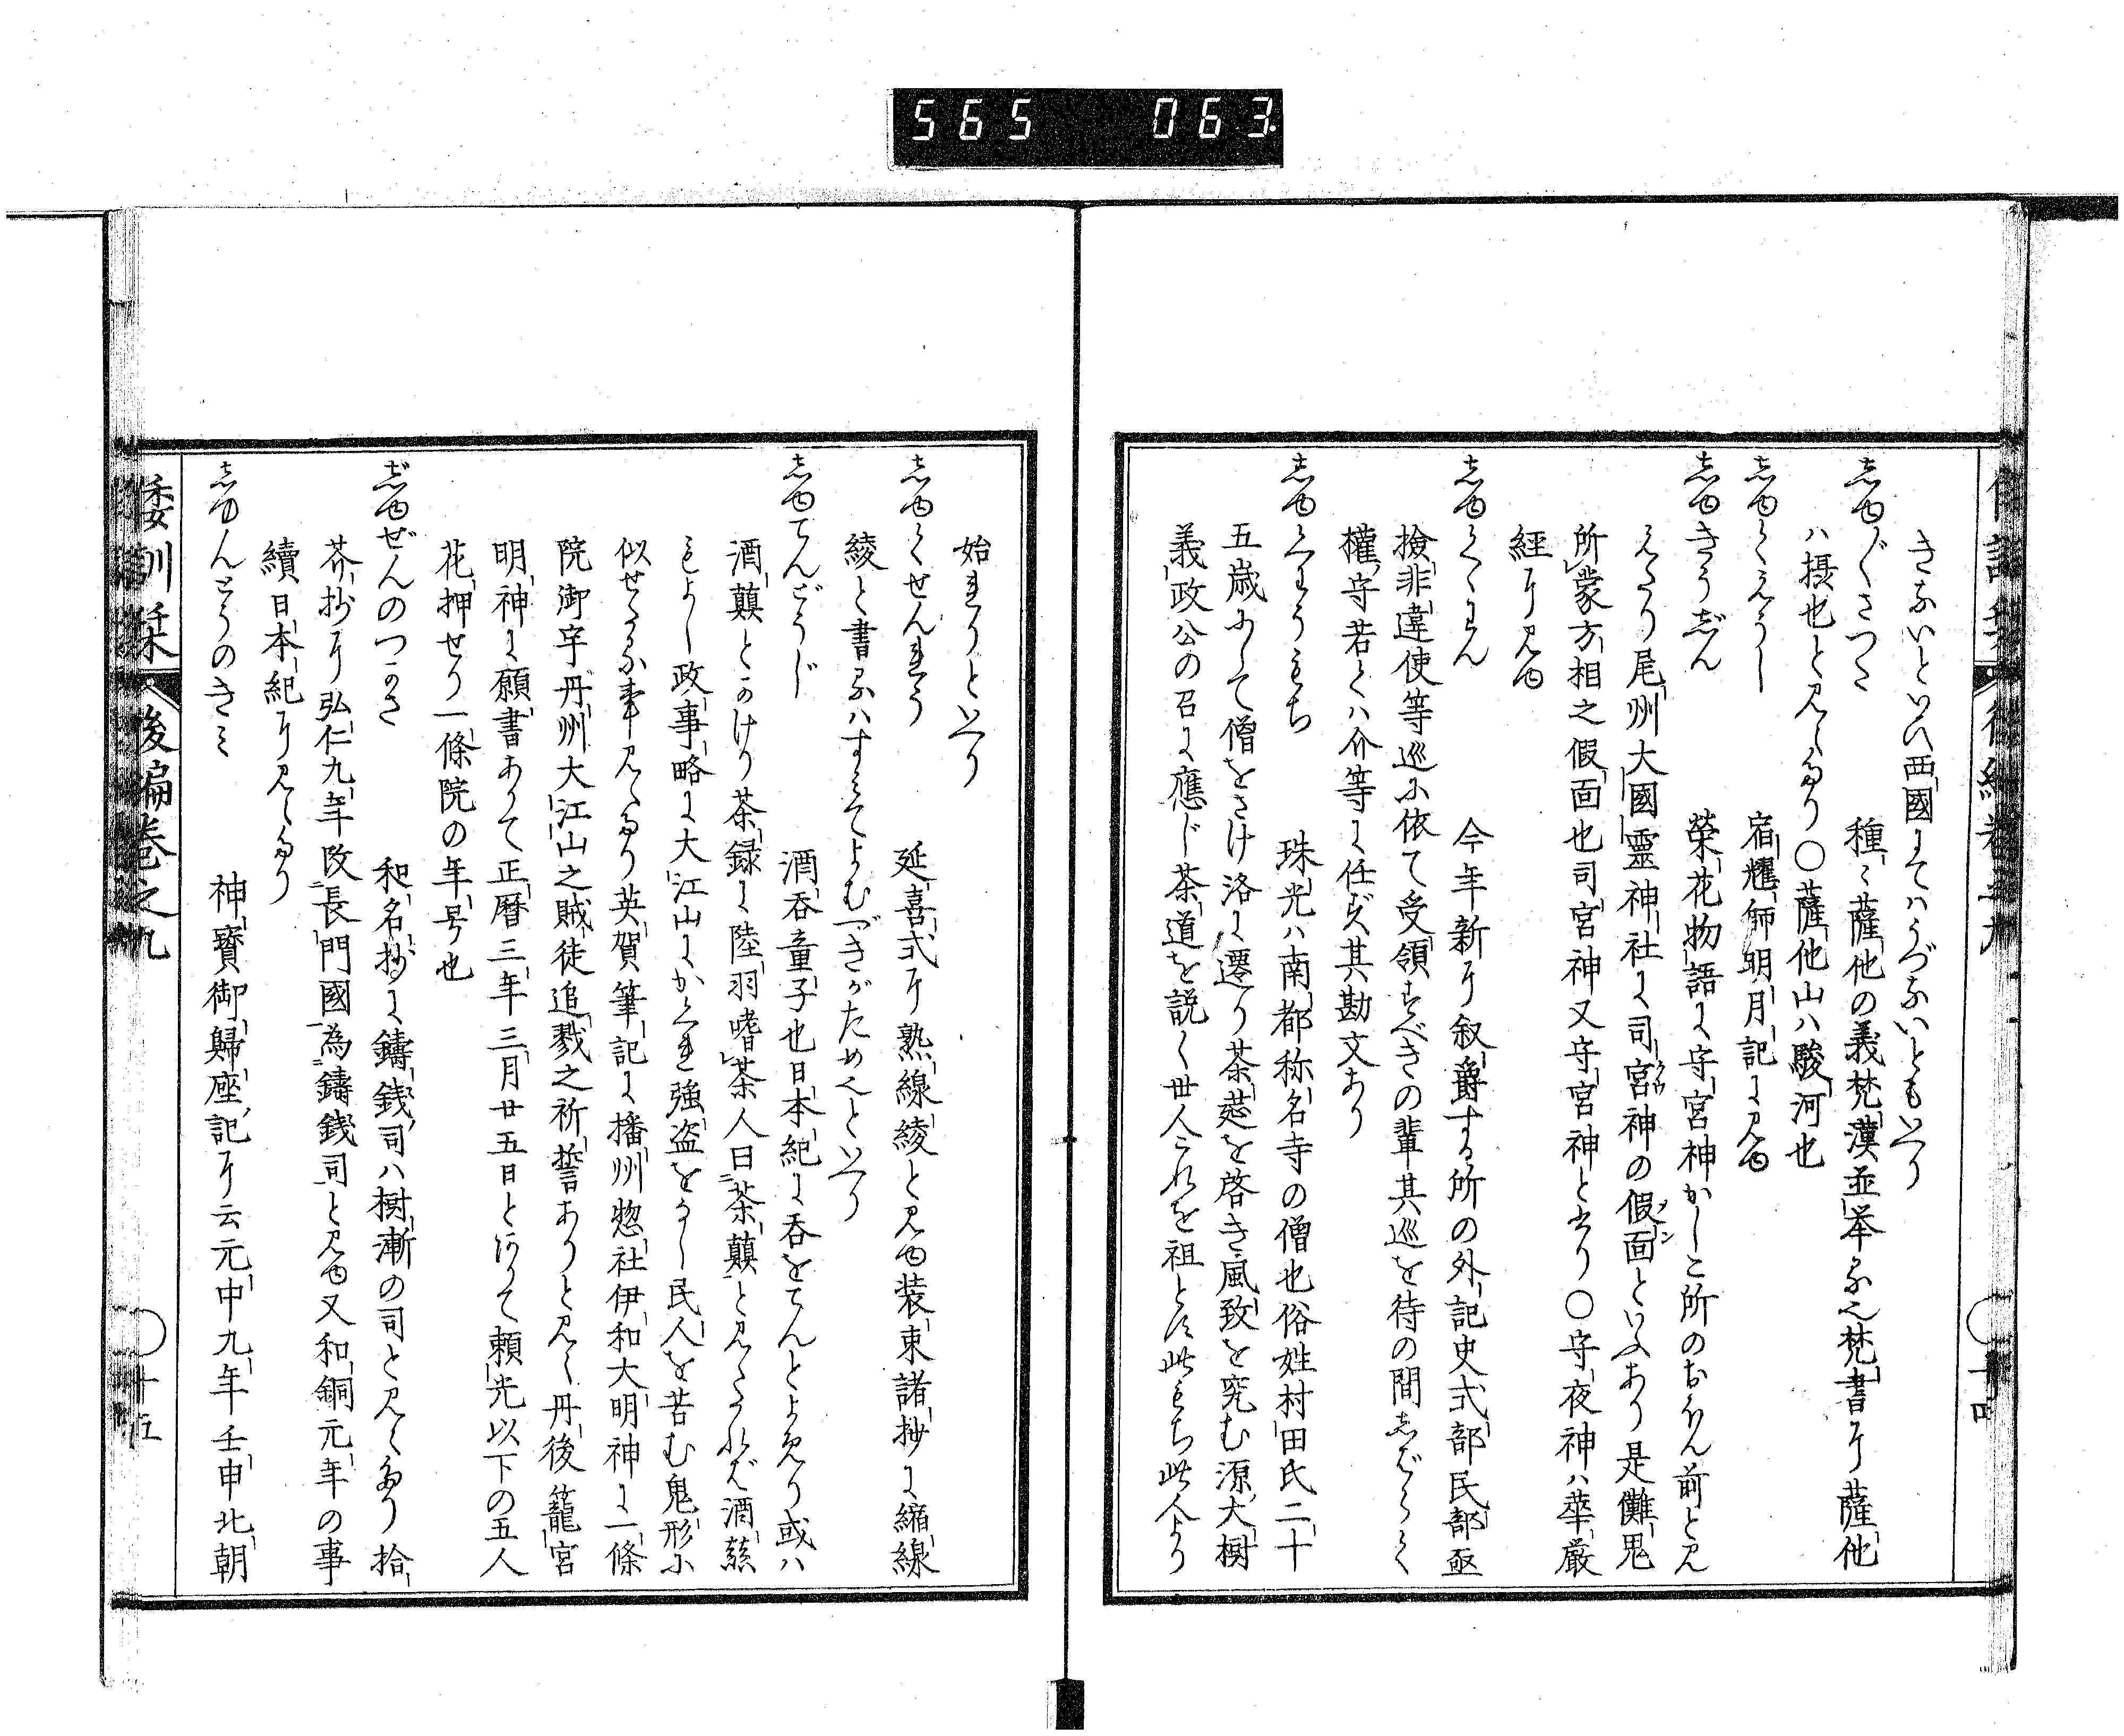 565 063
きないといひ西國にてハうづないともいへり
しゆぐさつた　種々薩他の義梵漢並挙る也梵書に薩他
ハ摂也と見えたり○薩他山ハ駿河也
しゆくえうし　宿耀師明月記に見ゆ
しゆきうじん　榮花物語に守宮神かしこ所のおほん前と見
えたり尾州大國靈神社に司宮神の假面といふあり是儺鬼
所蒙方相之假面也司宮神又守宮神と云り○守夜神ハ華厳
經に見ゆ
しゆくくわん　今年新に叙爵する所の外記史式部民部亟
撿非違使等巡に依て受領すべきの輩其巡を待の間しばらく
權守若くハ介等に任ず其勘文あり
しゆくわうもち　珠光ハ南都称名寺の僧也俗姓村田氏二十
五歳にして僧をさけ洛に遷り茶莚を啓き風致を究む源大樹
義政公の召に應じ茶道を説く世人これを祖とす此もち此人より
始れりといへり
しゆくせんれう　延喜式に熟線綾と見ゆ装束諸抄に縮線
綾と書るハすべてよむづきがためんといへり
しゆてんどうじ　酒呑童子也日本紀に呑をてんとよめり或ハ
酒顛とかけり茶録に陸羽嗜茶人曰茶顛と見えたれバ酒顛
もよし政事略に大江山にかくれ強盗をなし民人を苦む鬼形に
似せたる事見えたり英賀筆記に播州惣社伊和大明神に一條
院御宇丹州大江山之賊徒追戮之祈誓ありと見え丹後籠宮
明神に願書ありて正暦三年三月廿五日と記て頼光以下の五人
花押せり一條院の年号也
じゆぜんのつかさ　和名抄に鑄銭司ハ樹漸の司と見えたり拾
芥抄に弘仁九年改長門國為鑄銭司と見ゆ又和銅元年の事
續日本紀に見えたり
しゆんとうのきみ　神寳御歸座記に云元中九年壬申北朝
倭訓栞　後編巻之九　十五